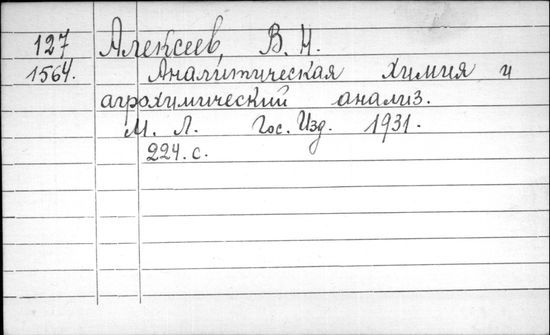 127 Алексеев, В. Н.
1564. Аналитическая химия и
агрохимический анализ.
М. Л. Гос. Изд. 1931.
224. с.